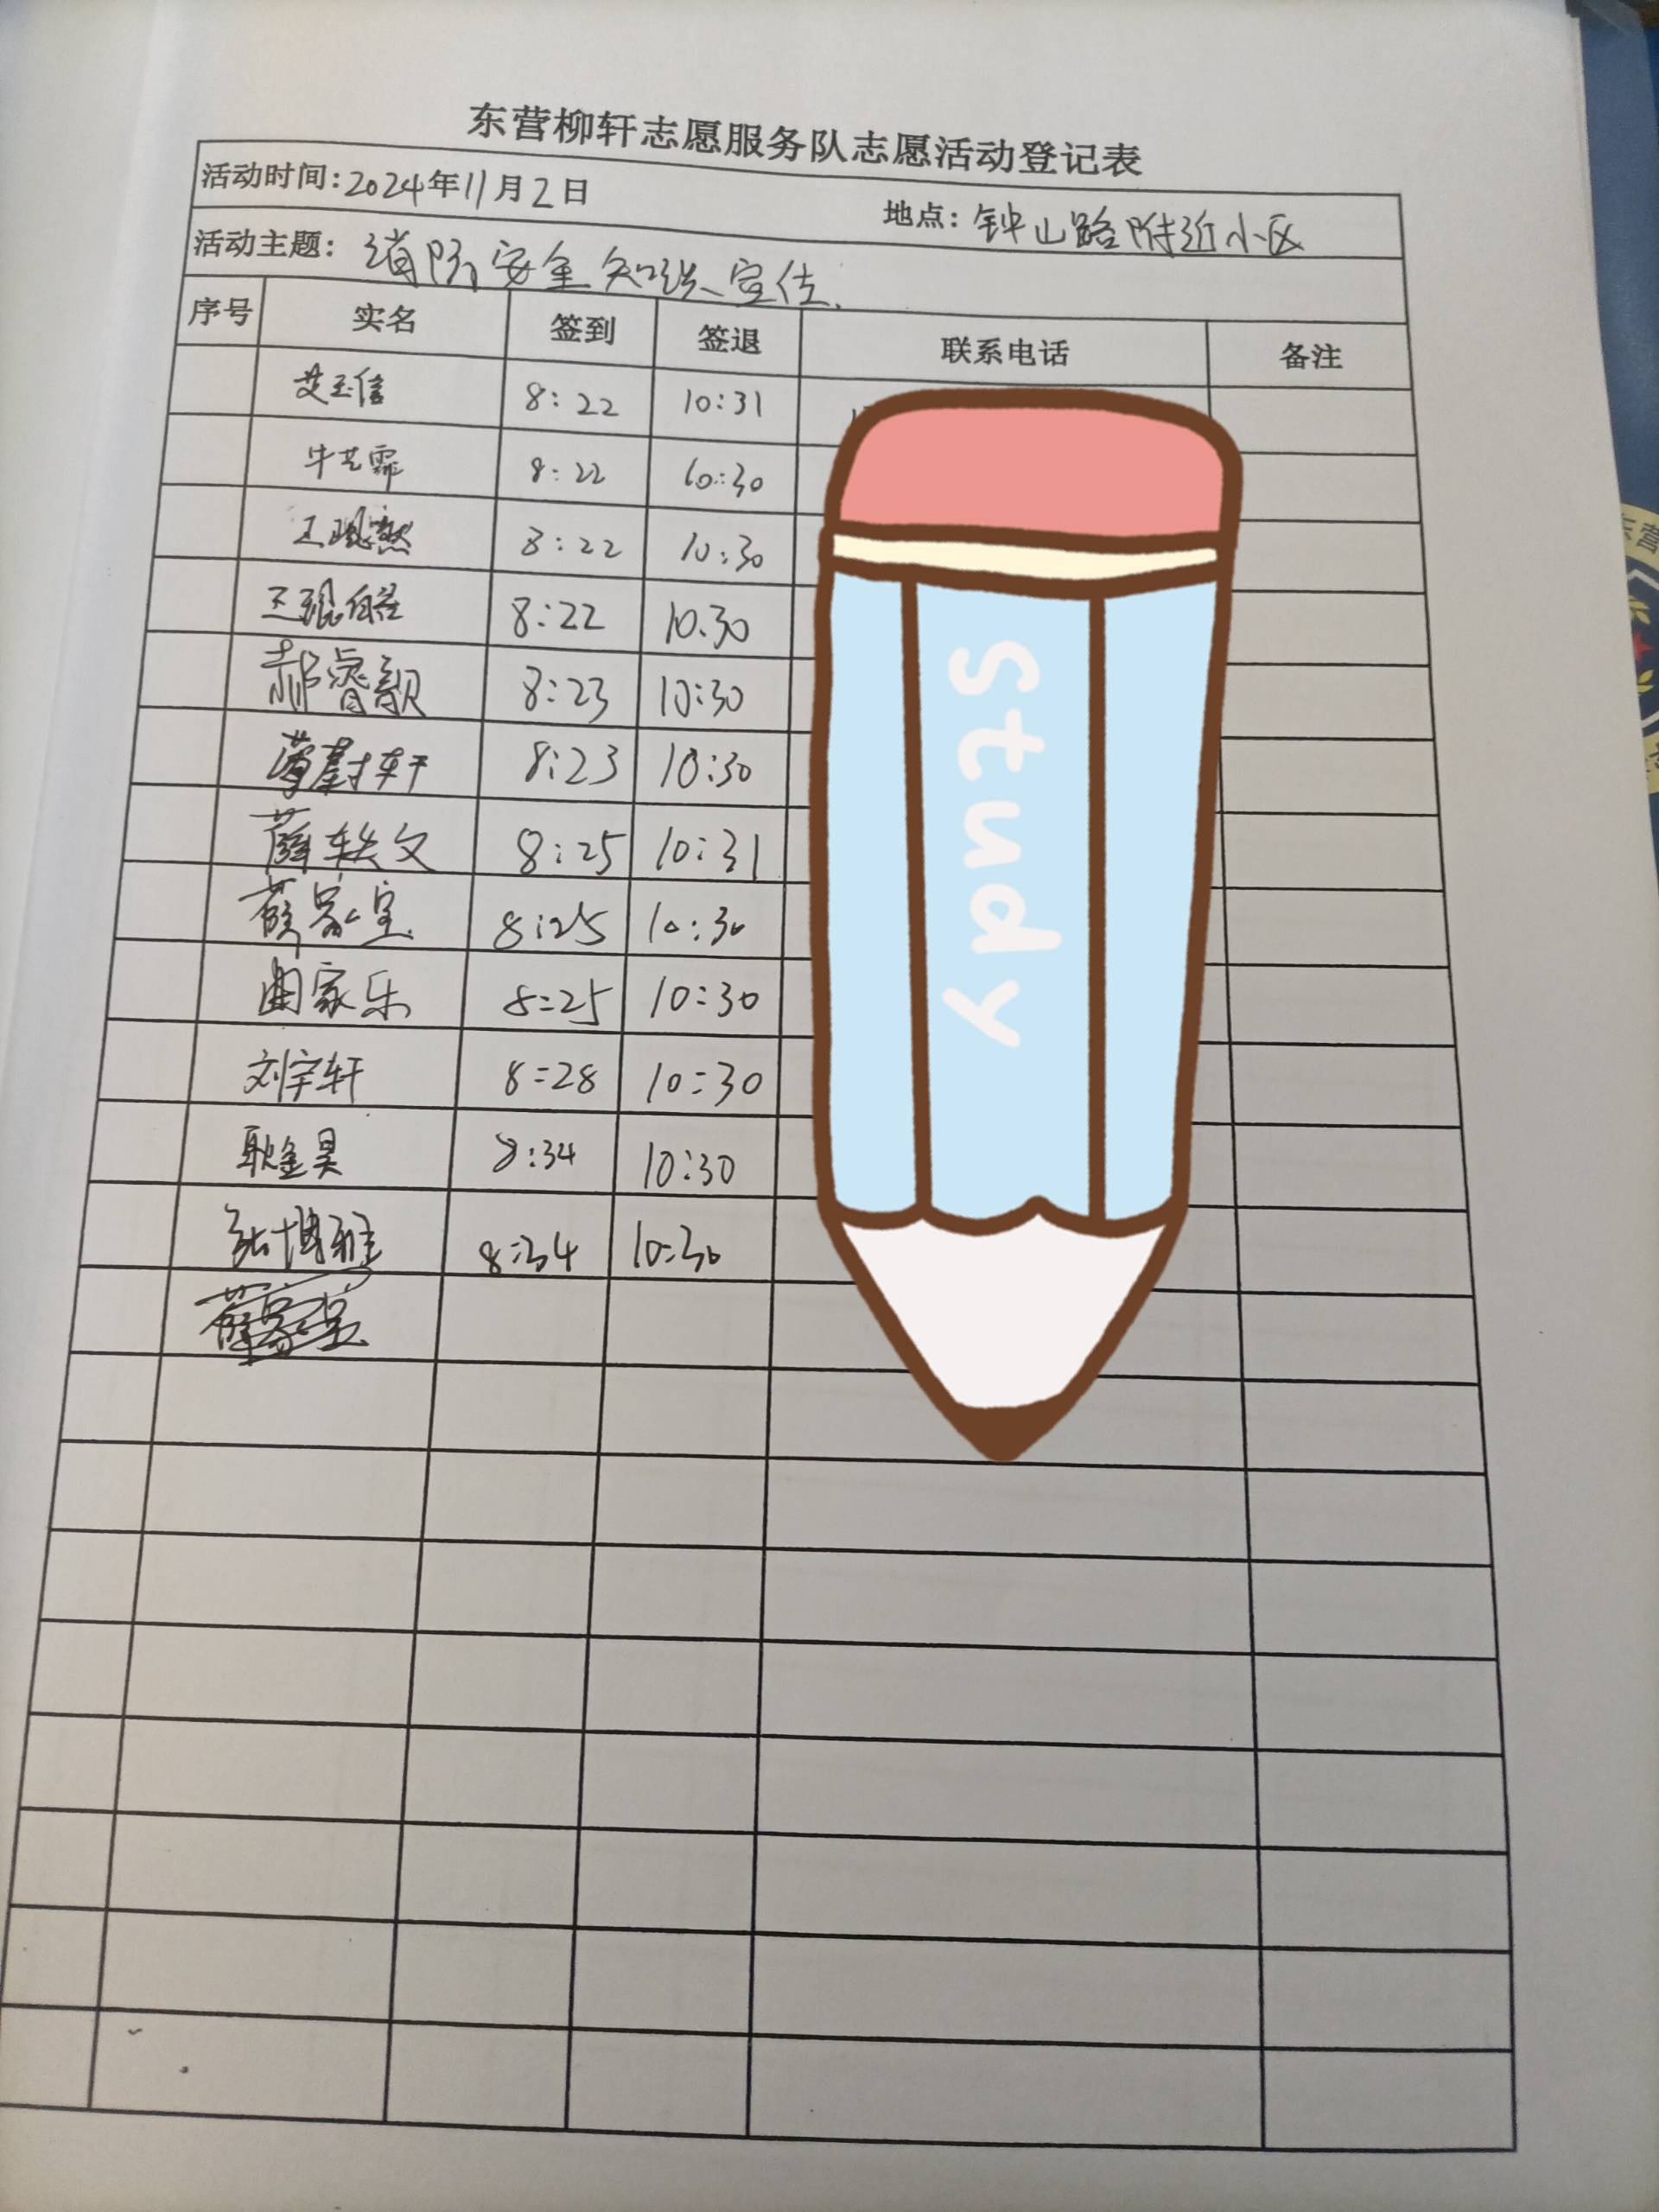 东营柳轩志愿服务队志愿活动登记表
活动时间：2024年11月2日 地点：钟山路附近小区
活动主题：消防安全知识宣传
序号 实名 签到 签退 联系电话 备注
艾玉信 8:22 10:31
牛艺霏 8:22 10:30
王琨懿 8:22 10:30
王琨 8:22 10.30
郝睿颖 8:23 10:30
轩 8:23 10:30
薛轶文 8:25 10:31
薛 8:25 10:30
曲家乐 8:25 10:30
刘宇轩 8:28 10:30
耿金昊 8:34 10:30
张博雅 8:34 10:30
Study
东营